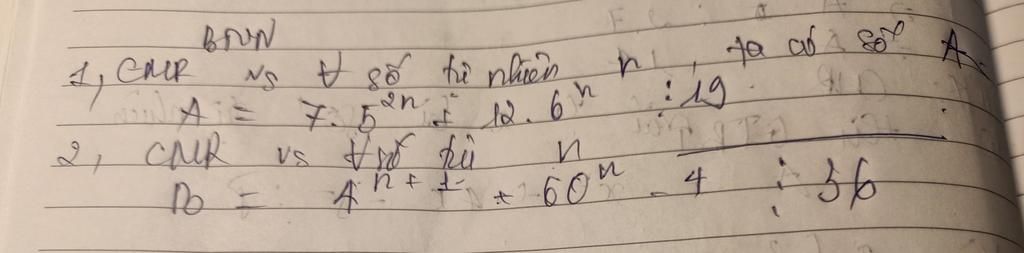 BTVN
1, CMR vs ∀ số tự nhiên n, ta có số A
A = 7.5²ⁿ + 12.6ⁿ ⋮ 19
2, CMR vs ∀ số tự n
= 4ⁿ⁺¹ + 60ⁿ - 4 ⋮ 56